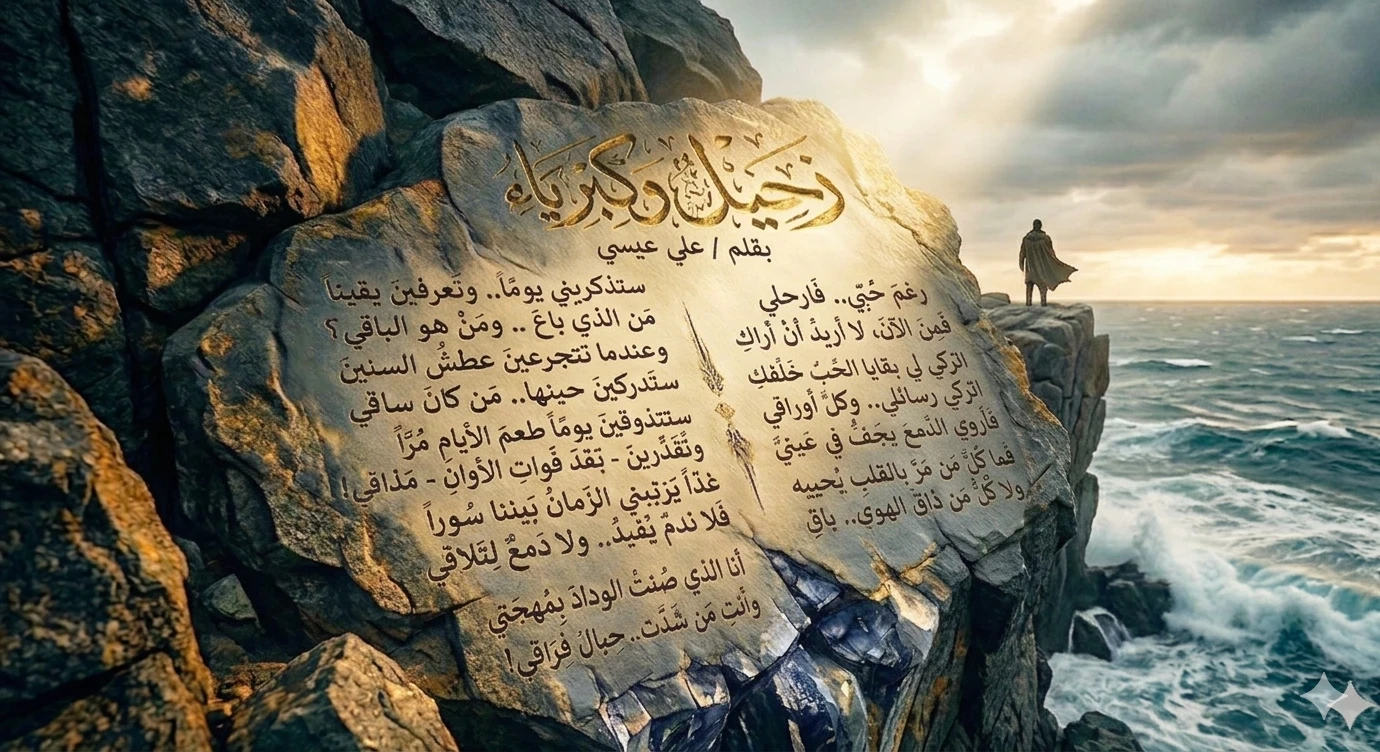 رَحيل وكبرياء
بقلم / علي عيسي
رغمَ حُبّي.. فَارحلي
فَمِنَ الآنَ، لا أريدُ أنْ أراكِ
اتركي لي بقايا الحُبُّ خَلْفكِ
اتركي رسائلي.. وكلَّ أوراقي
فَأروي الدَّمعَ يجَفُّ في عَينيَّ
فما كُلُّ مَن مَرَّ بالقلبِ يُحييه
ولا كُلُّ مَن ذاقَ الهوي.. باقِ
ستذكريني يومًاً.. وتَعرفينَ يقيناً
مَن الذي باعَ .. ومَنْ هو الباقي؟
وعندما تتجرعينَ عطشُ السنينَ
ستَدركينَ حينها.. مَن كانَ ساقي
ستتذوقينَ يوماً طعمَ الأيامِ مُرَّاً
وتُقَدَّرينَ - بَعْدَ فَواتِ الأوانِ - مَذاقي!
غذاً يَزتِبني الزمانُ بَيننا سُوراً
فَلا ندمٌ يُفيدُ.. ولا دَمعٌ لِتَلاقي
أنا الذي صُنتُ الودادَ بِمُهجَتي
وأنتِ مَن شَدَّت.. حِبالُ فِرَاقي!